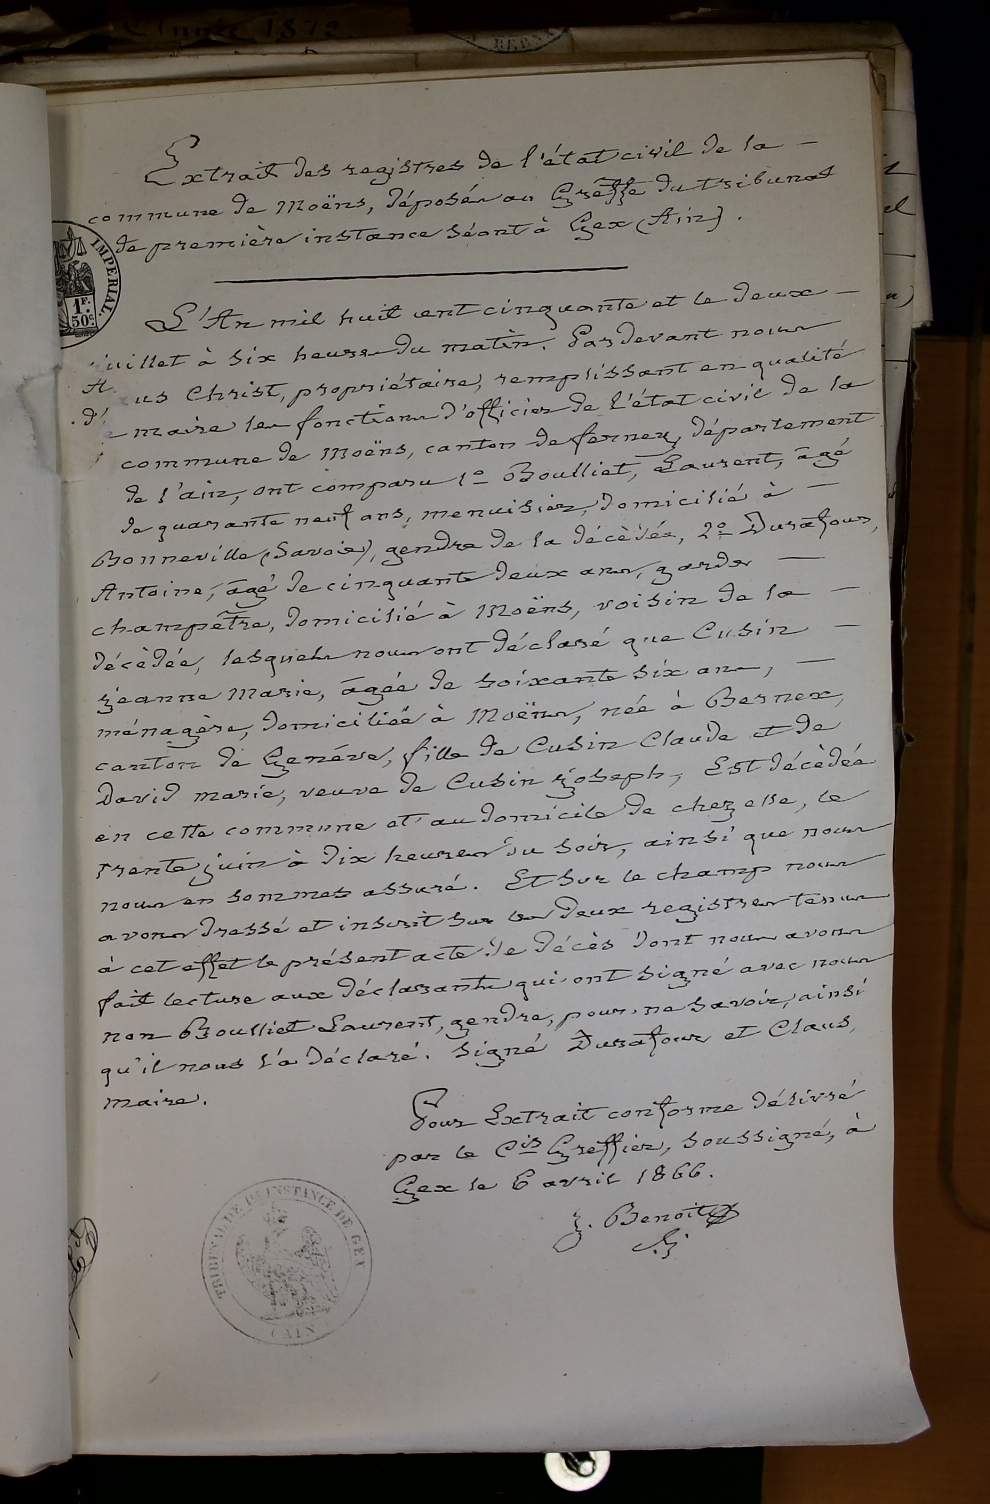 Année 1872
BERNEX
IMPERIAL.
1F.
50c.
Extrait des registres de l'état civil de la —
commune de Moëns, déposés au Greffe du tribunal
de première instance séant à Gex (Ain).
L'An mil huit cent cinquante et le deux —
juillet à six heures du matin. Pardevant nous
Claus Christ, propriétaire, remplissant en qualité
de maire les fonctions d'officier de l'état civil de la
commune de Moëns, canton de ferney, département
de l'ain, ont comparu 1º Boulliet, Laurent, âgé
de quarante neuf ans, menuisier, domicilié à —
Bonneville (Savoie), gendre de la décèdée, 2º Durafour,
Antoine, âgé de cinquante deux ans, garde —
champêtre, domicilié à Moëns, voisin de la —
décèdée, lesquels nous ont déclaré que Cusin —
Jeanne Marie, âgée de soixante six ans, —
ménagère, domiciliée à Moëns, née à Bernex,
canton de Genéve, fille de Cusin Claude et de
David marie, veuve de Cusin Joseph, Est décèdée
en cette commune et au domicile de chez elle, le
trente juin à dix heures du soir, ainsi que nous
nous en sommes assuré. Et sur le champ nous
avons dressé et inscrit sur les deux registres tenus
à cet effet le présent acte de décès dont nous avons
fait lecture aux déclarants qui ont signé avec nous
non Boulliet Laurent, gendre, pour ne savoir, ainsi
qu'il nous l'a déclaré. Signé Durafour et Claus,
maire.
Pour Extrait conforme délivré
par le Cis Greffier, soussigné, à
Gex le 6 avril 1866.
J. Benoit
TRIBUNAL DE 1RE INSTANCE DE GEX
(AIN)